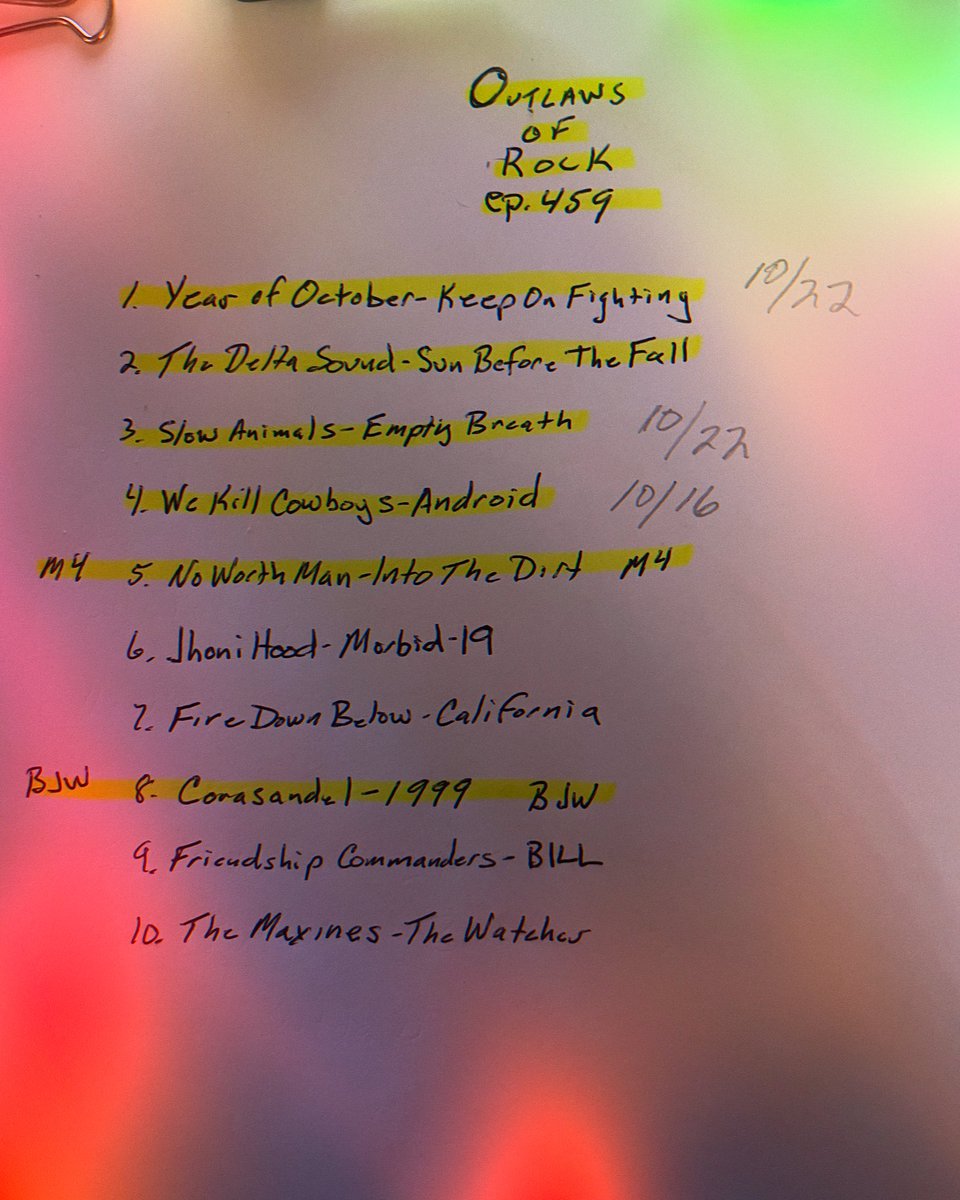 Outlaws
of
Rock
ep. 459
1. Year of October - Keep On Fighting 10/22
2. The Delta Sound - Sun Before The Fall
3. Slow Animals - Empty Breath 10/22
4. We Kill Cowboys - Android 10/16
M4 5. No Worth Man - Into The Dirt M4
6. Jhoni Hood - Morbid-19
7. Fire Down Below - California
BJW 8. Corasandel - 1999 BJW
9. Friendship Commanders - BILL
10. The Maxines - The Watcher